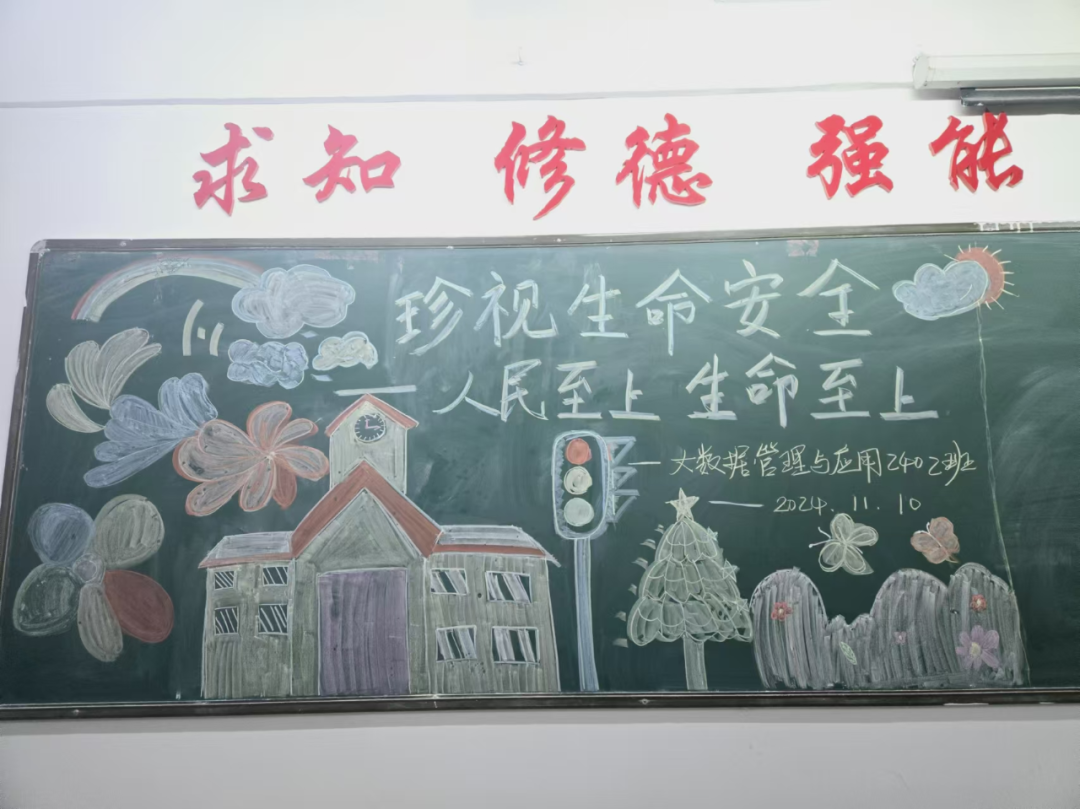 求知 修德 强能
珍视生命安全
——人民至上 生命至上
——大数据管理与应用2402班
——2024.11.10